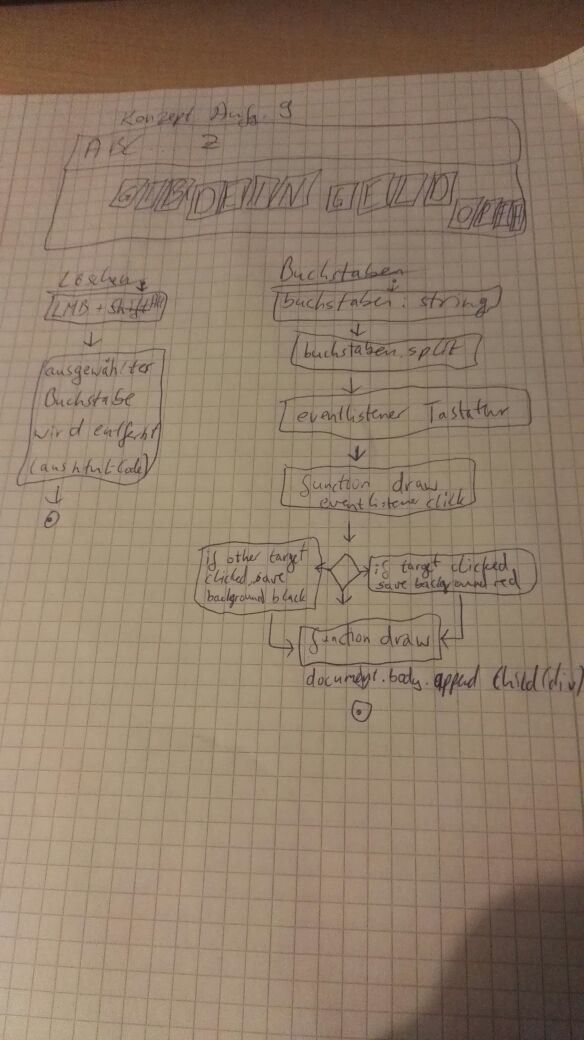 Konzept Aufg. 9
ABC... Z
GIB DEIN GELD
OPA
Löschen
LMB +
ausgewählter
Buchstabe
wird entfernt
(aus html Code)
Buchstaben
buchstaben: string
buchstaben.split
eventlistener Tastatur
function draw
eventlistener click
if other target
clicked, save
background black
if target clicked
save background red
function draw
document.body.append Child(div)